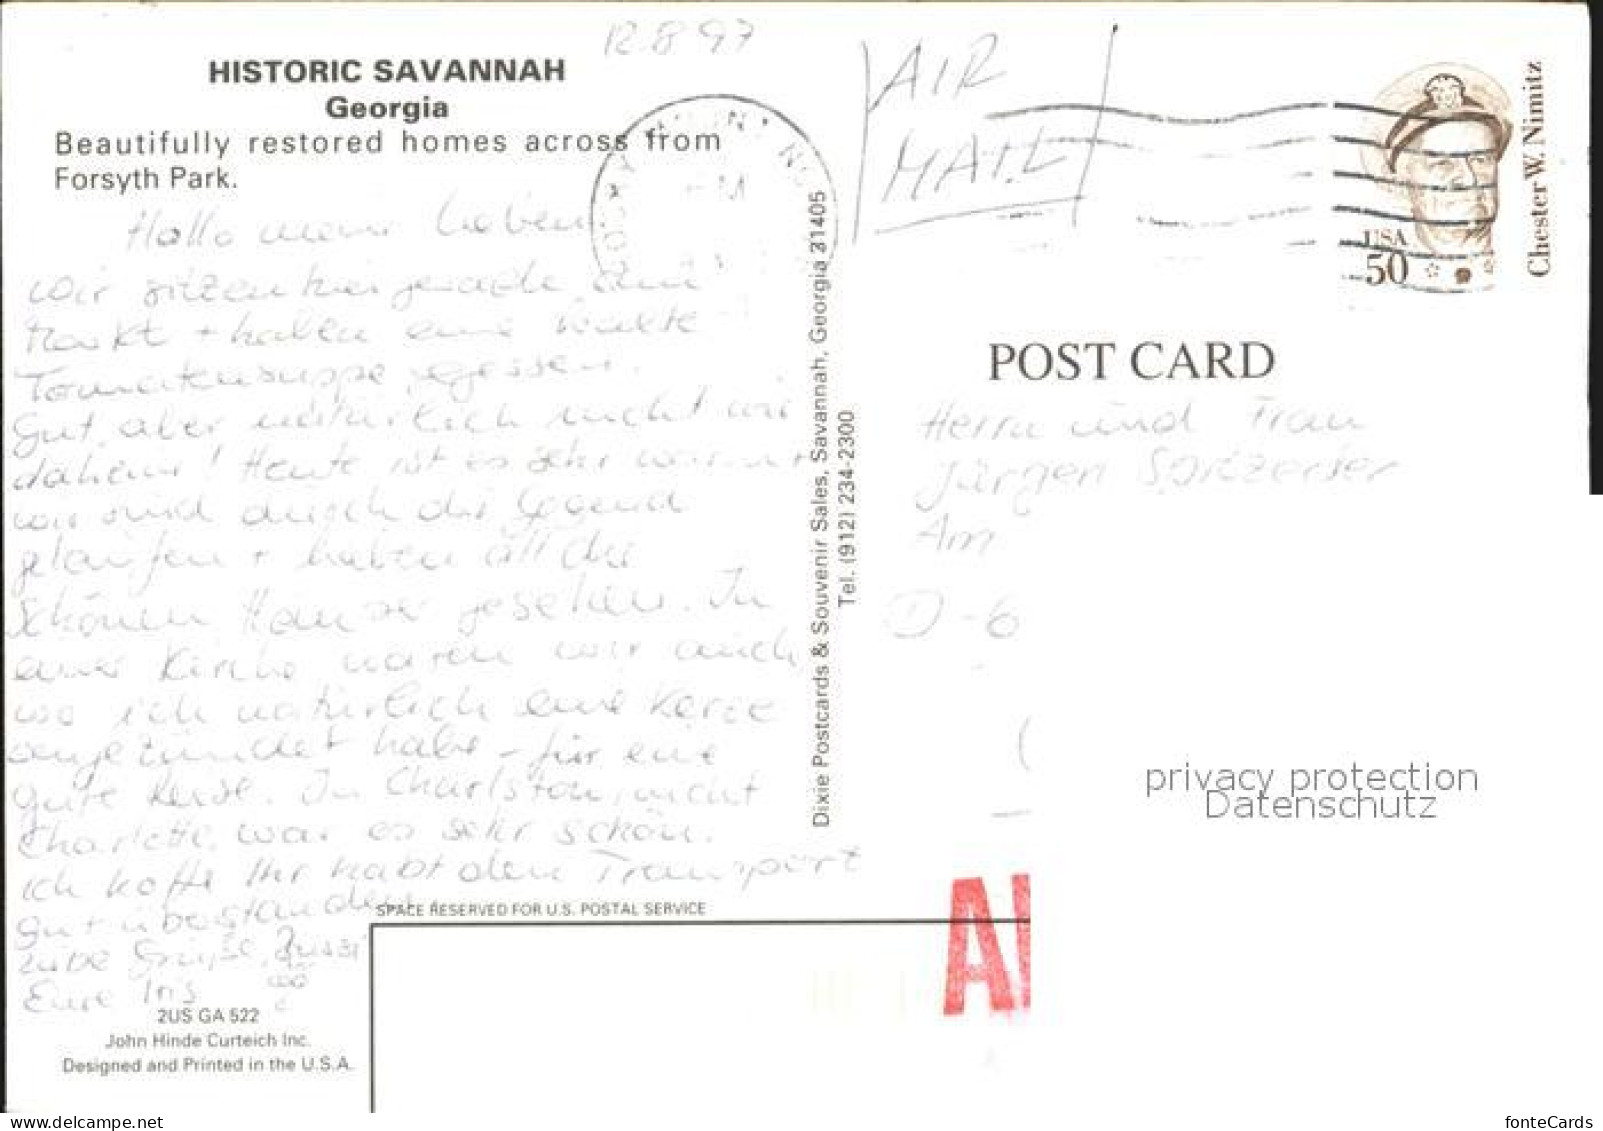 12.8.97
HISTORIC SAVANNAH
Georgia
Beautifully restored homes across from
Forsyth Park.
Hallo meine Lieben
wir sitzen hier gerade am
Markt + haben eine kalte
Tomatensuppe gegessen.
Gut, aber natürlich nicht wie
daheim! Heute ist es sehr warm +
wir sind durch die Gegend
gelaufen + haben all die
schönen Häuser gesehen. In
einer Kirche waren wir auch
wo ich natürlich eine Kerze
angezündet habe - für eine
gute Reise. In Charlston, nicht
Charlotte, war es sehr schön.
Ich hoffe Ihr habt den Transport
gut überstanden
Liebe Grüße, Bussi
Eure Iris
2US GA 522
John Hinde Curteich Inc.
Designed and Printed in the U.S.A.
Dixie Postcards & Souvenir Sales, Savannah, Georgia 31405
Tel. (912) 234-2300
SPACE RESERVED FOR U.S. POSTAL SERVICE
AIR
MAIL
USA
50
Chester W. Nimitz
POST CARD
Herrn und Frau
Jürgen
Am
D-6
privacy protection
Datenschutz
oldthing.com
fonteCards